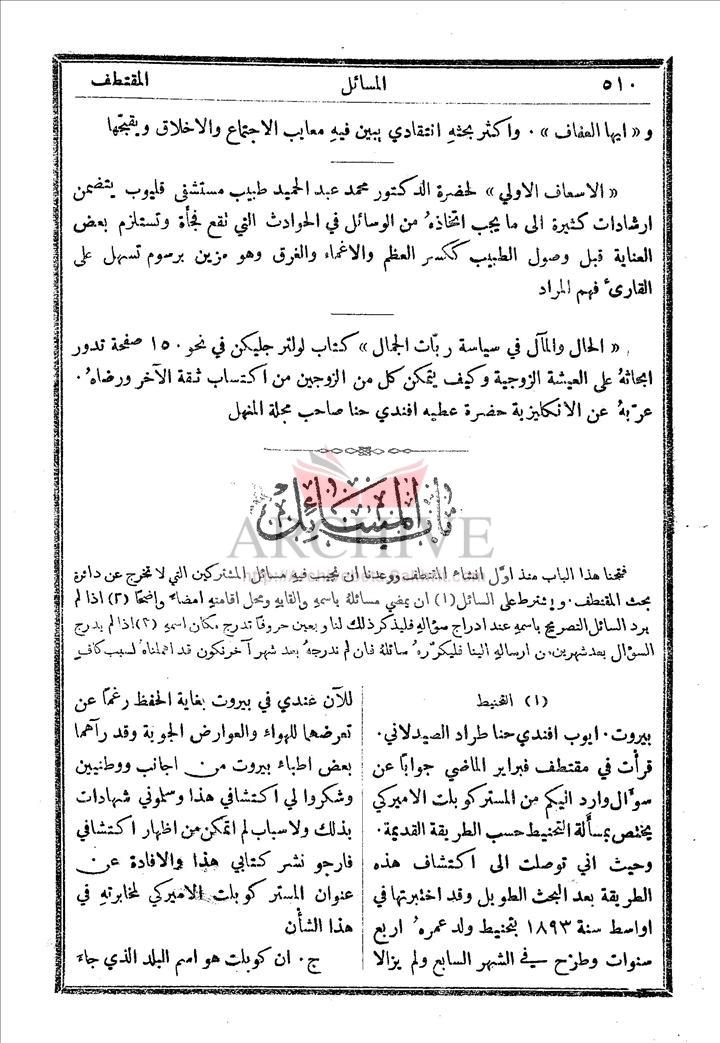 ٥١٠
المسائل
المقتطف
و « ايها العفاف » ٠ واكثر بحثهِ انتقادي يبين فيهِ معايب الاجتماع والاخلاق ويقبّحها
« الاسعاف الاولي » لحضرة الدكتور محمد عبد الحميد طبيب مستشفى قليوب يتضمن
ارشادات كثيرة الى ما يجب اتخاذهُ من الوسائل في الحوادث التي تقع فجأة وتستلزم بعض
العناية قبل وصول الطبيب ككسر العظم والاغماء والغرق وهو مزين برسوم تسهل على
القارئ فهم المراد
« الحال والمآل في سياسة ربّات الجمال » كتاب لولتر جليكن في نحو ١٥٠ صفحة تدور
ابحاثهُ على العيشة الزوجية وكيف يتمكن كل من الزوجين من اكتساب ثقة الآخر ورضاهُ ٠
عرّبهُ عن الانكليزية حضرة عطيه افندي حنا صاحب مجلة المنهل
باب المسائل
ARCHIVE
فتحنا هذا الباب منذ اول انشاء المقتطف ووعدنا ان نجيب فيه مسائل المشتركين التي لا تخرج عن دائرة
بحث المقتطف ٠ ويشترط على السائل (١) ان يمضي مسائلهُ باسمهِ والقابهِ ومحل اقامتهِ امضاءً واضحًا (٢) اذا لم
يرد السائل التصريح باسمهِ عند ادراج سؤالهِ فليذكر ذلك لنا ويعين حروفًا تدرج مكان اسمهِ (٣) اذا لم يدرج
السؤال بعد شهرين من ارسالهِ الينا فليكررهُ سائلهُ فان لم ندرجهُ بعد شهر آخر نكون قد اهملناهُ لسبب كافٍ
(١) التحنيط
بيروت ٠ ايوب افندي حنا طراد الصيدلاني ٠
قرأت في مقتطف فبراير الماضي جوابًا عن
سؤال وارد اليكم من المستر كوبلت الاميركي
يختص بمسألة التحنيط حسب الطريقة القديمة ٠
وحيث اني توصلت الى اكتشاف هذه
الطريقة بعد البحث الطويل وقد اختبرتها في
اواسط سنة ١٨٩٣ بتحنيط ولد عمرهُ اربع
سنوات وطرح في الشهر السابع ولم يزالا
للآن عندي في بيروت بغاية الحفظ رغمًا عن
تعرضهما للهواء والعوارض الجوية وقد رآهما
بعض اطباء بيروت من اجانب ووطنيين
وشكروا لي اكتشافي هذا وسلموني شهادات
بذلك ولاسباب لم اتمكن من اظهار اكتشافي
فارجو نشر كتابي هذا والافادة عن
عنوان المستر كوبلت الاميركي لمخابرتهِ في
هذا الشأن
ج ٠ ان كوبلت هو اسم البلد الذي جاءَ